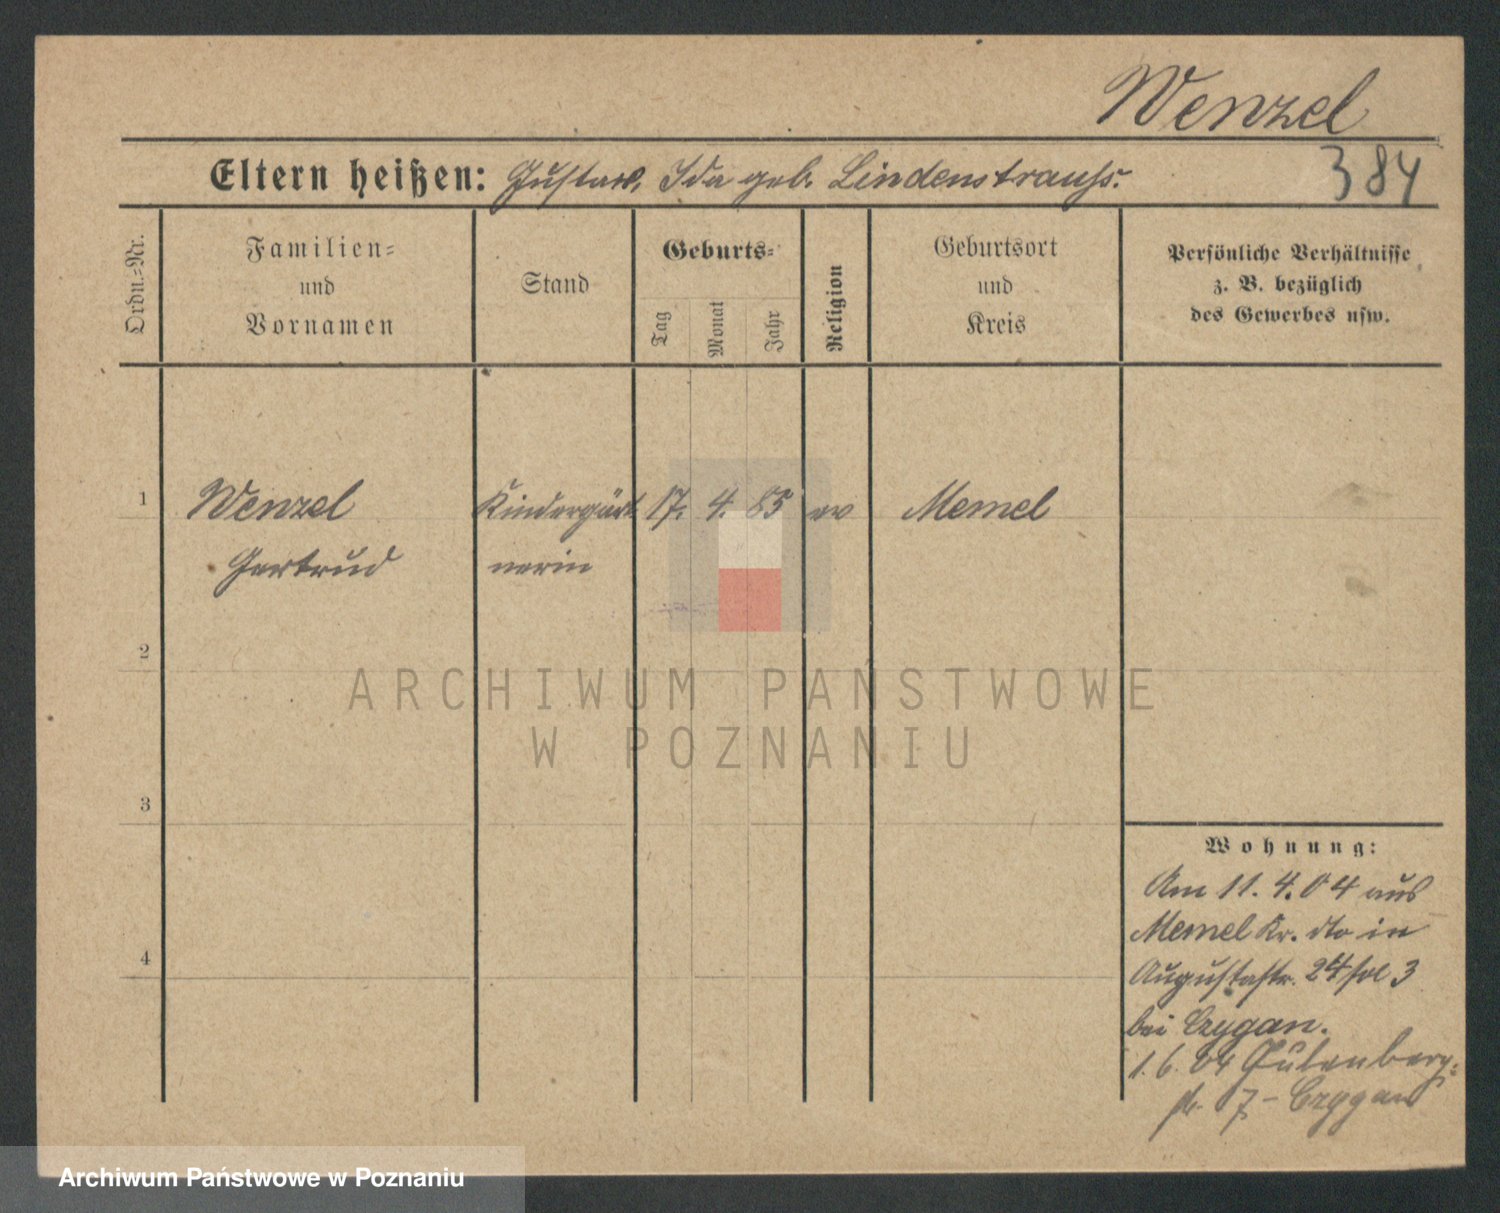 Wenzel
Eltern heißen: Gustav, Ida geb. Lindenstrauss.
384
Ordn.=Nr.
Familien=
und
Vornamen
Stand
Geburts=
Tag
Monat
Jahr
Religion
Geburtsort
und
Kreis
Persönliche Verhältnisse
z. B. bezüglich
des Gewerbes usw.
1
Wenzel Kindergärt 17. 4. 85 ev Memel
Gertrud nerin
2
ARCHIWUM PAŃSTWOWE
W POZNANIU
3
4
Wohnung:
Am 11. 4. 04 aus
Memel Kr. dto in
Augustastr. 24 3
bei Czygan.
1. 6. 04 Eulenberg=
str. 7 - Czygan
Archiwum Państwowe w Poznaniu